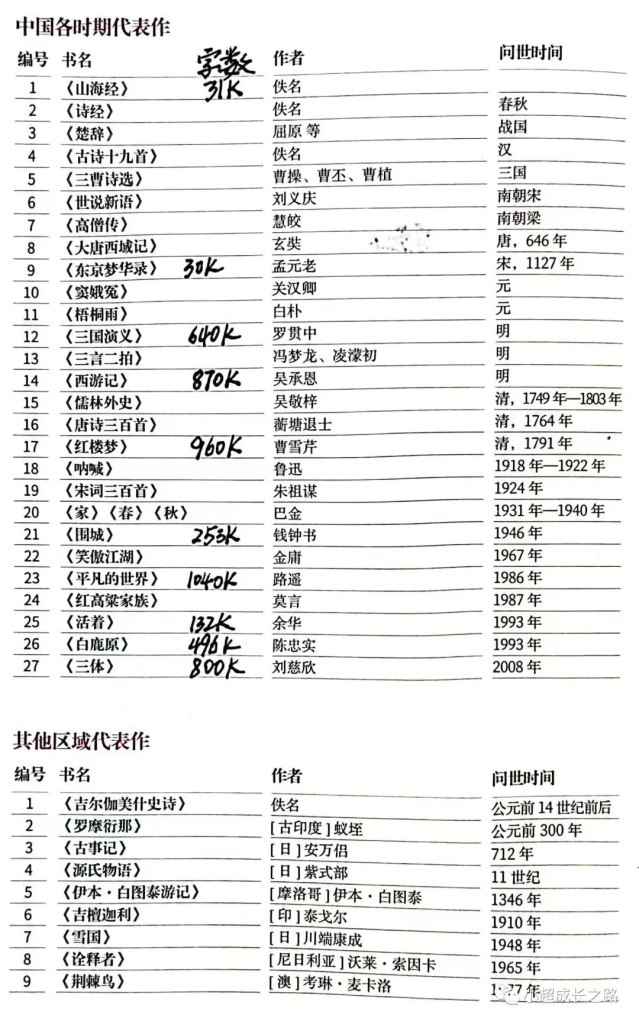 中国各时期代表作
编号 书名 字数 作者 问世时间
1 《山海经》 31K 佚名
2 《诗经》 佚名 春秋
3 《楚辞》 屈原 等 战国
4 《古诗十九首》 佚名 汉
5 《三曹诗选》 曹操、曹丕、曹植 三国
6 《世说新语》 刘义庆 南朝宋
7 《高僧传》 慧皎 南朝梁
8 《大唐西域记》 玄奘 唐，646 年
9 《东京梦华录》 30K 孟元老 宋，1127 年
10 《窦娥冤》 关汉卿 元
11 《梧桐雨》 白朴 元
12 《三国演义》 640K 罗贯中 明
13 《三言二拍》 冯梦龙、凌濛初 明
14 《西游记》 870K 吴承恩 明
15 《儒林外史》 吴敬梓 清，1749 年—1803 年
16 《唐诗三百首》 蘅塘退士 清，1764 年
17 《红楼梦》 960K 曹雪芹 清，1791 年
18 《呐喊》 鲁迅 1918 年—1922 年
19 《宋词三百首》 朱祖谋 1924 年
20 《家》《春》《秋》 巴金 1931 年—1940 年
21 《围城》 253K 钱钟书 1946 年
22 《笑傲江湖》 金庸 1967 年
23 《平凡的世界》 1040K 路遥 1986 年
24 《红高粱家族》 莫言 1987 年
25 《活着》 132K 余华 1993 年
26 《白鹿原》 496K 陈忠实 1993 年
27 《三体》 800K 刘慈欣 2008 年
其他区域代表作
编号 书名 作者 问世时间
1 《吉尔伽美什史诗》 佚名 公元前 14 世纪前后
2 《罗摩衍那》 [ 古印度 ] 蚁垤 公元前 300 年
3 《古事记》 [ 日 ] 安万侣 712 年
4 《源氏物语》 [ 日 ] 紫式部 11 世纪
5 《伊本·白图泰游记》 [ 摩洛哥 ] 伊本·白图泰 1346 年
6 《吉檀迦利》 [ 印 ] 泰戈尔 1910 年
7 《雪国》 [ 日 ] 川端康成 1948 年
8 《诠释者》 [ 尼日利亚 ] 沃莱·索因卡 1965 年
9 《荆棘鸟》 [ 澳 ] 考琳·麦卡洛 1977 年
小超成长之路